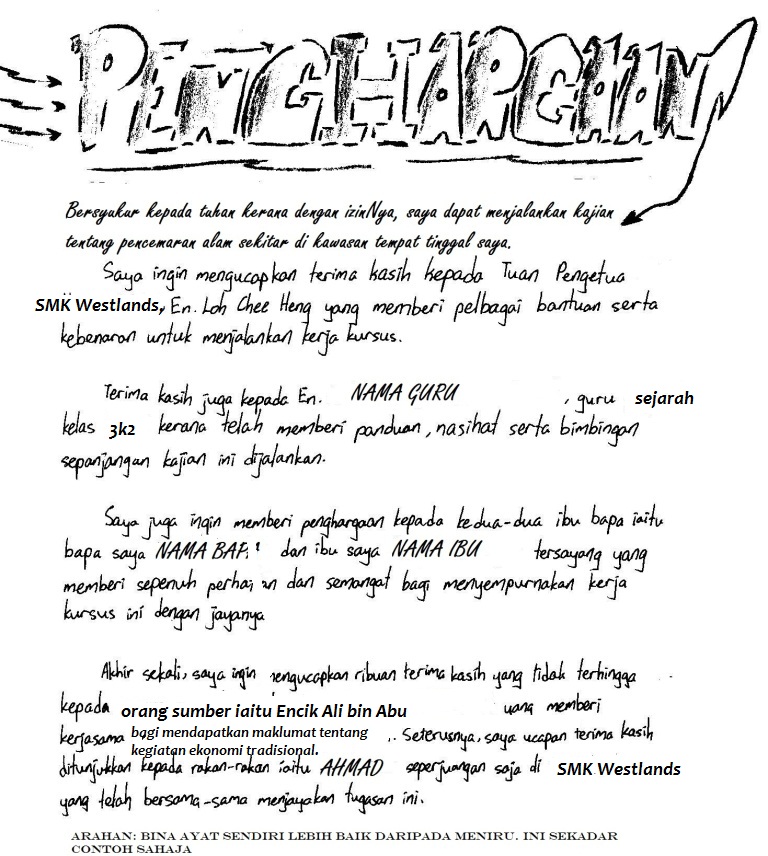 PENGHARGAAN
Bersyukur kepada tuhan kerana dengan izinNya, saya dapat menjalankan kajian
tentang pencemaran alam sekitar di kawasan tempat tinggal saya.
Saya ingin mengucapkan terima kasih kepada Tuan Pengetua
SMK Westlands, En. Loh Chee Heng yang memberi pelbagai bantuan serta
kebenaran untuk menjalankan kerja kursus.
Terima kasih juga kepada En. NAMA GURU , guru sejarah
kelas 3k2 kerana telah memberi panduan, nasihat serta bimbingan
sepanjangan kajian ini dijalankan.
Saya juga ingin memberi penghargaan kepada kedua-dua ibu bapa iaitu
bapa saya NAMA dan ibu saya NAMA IBU tersayang yang
memberi sepenuh dan semangat bagi menyempurnakan kerja
kursus ini dengan jayanya
Akhir sekali, saya ingin mengucapkan ribuan terima kasih yang tidak terhingga
kepada orang sumber iaitu Encik Ali bin Abu yang memberi
kerjasama bagi mendapatkan maklumat tentang
kegiatan ekonomi tradisional. Seterusnya, saya ucapan terima kasih
ditunjukkan kepada rakan-rakan iaitu AHMAD seperjuangan saja di SMK Westlands
yang telah bersama-sama menjayakan tugasan ini.
ARAHAN: BINA AYAT SENDIRI LEBIH BAIK DARIPADA MENIRU. INI SEKADAR
CONTOH SAHAJA